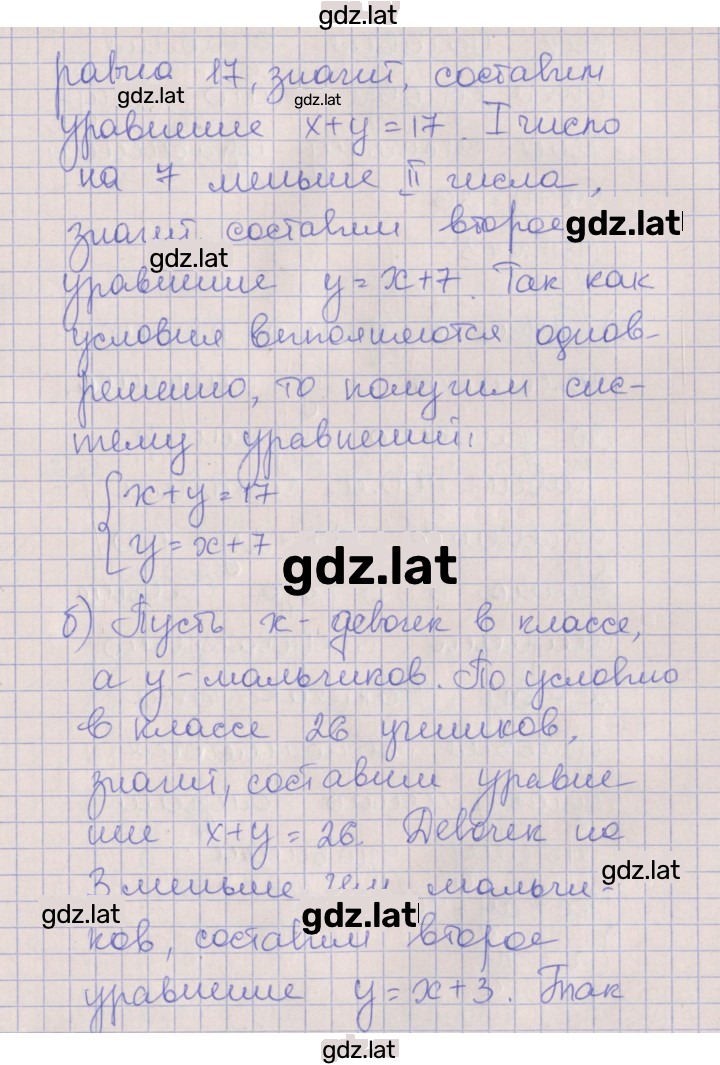 gdz.lat
равна 17, значит, составим
gdz.lat gdz.lat
уравнение x+y=17. I число
на 7 меньше II числа,
значит составим второе gdz.lat
gdz.lat
уравнение y=x+7. Так как
условия выполняются однов-
ременно, то получим сис-
тему уравнений:
x+y=17
y=x+7
gdz.lat
б) Пусть x- девочек в классе,
а y-мальчиков. По условию
в классе 26 учеников,
значит, составим уравне
ние x+y=26. Девочек на
gdz.lat
3 меньше чем мальчи-
gdz.lat gdz.lat
ков, составим второе
уравнение y=x+3. Так
gdz.lat